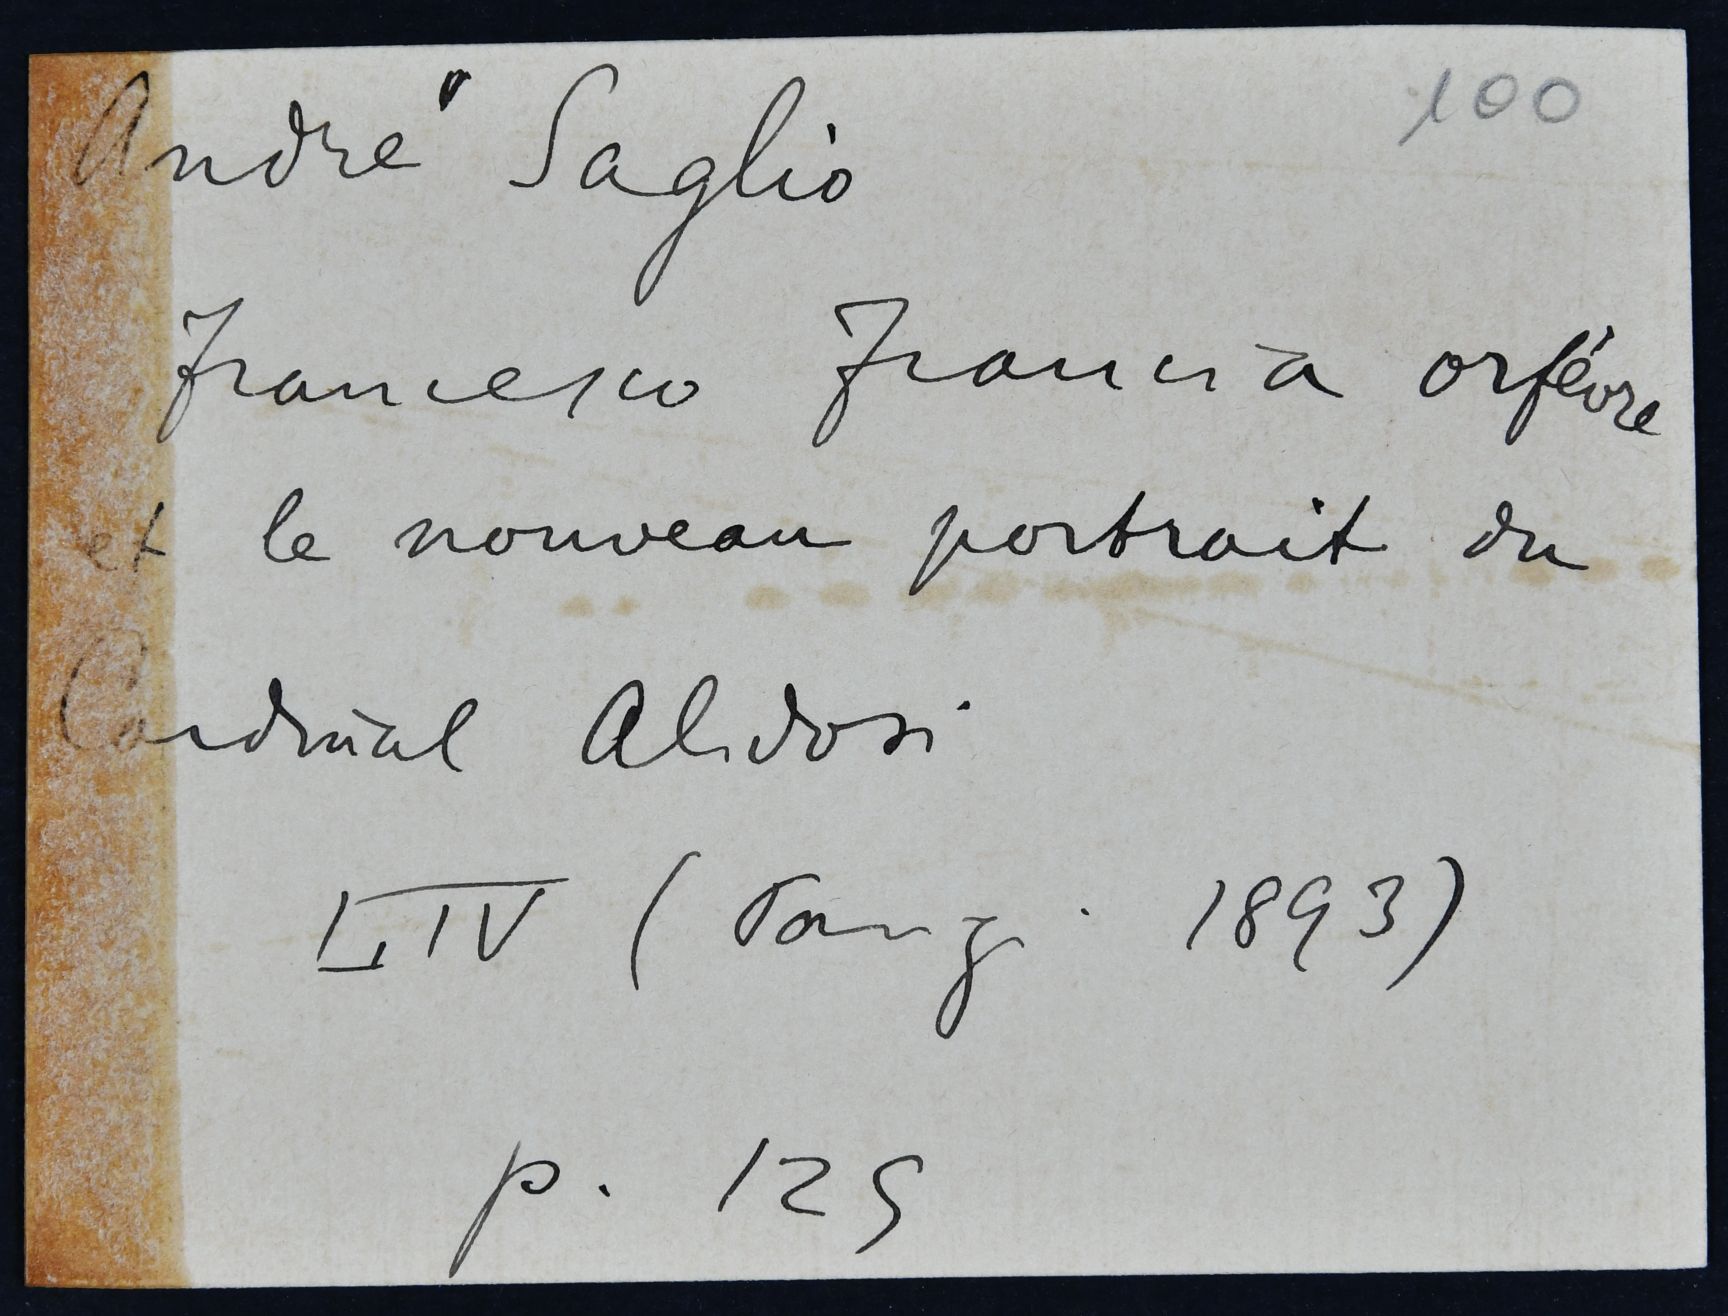 100
André Saglio
Francesco Francia orfévre
et le nouveau portrait du
Cardinal Alidosi
(1893)
p. 125